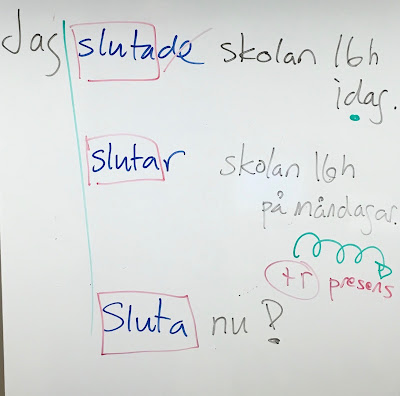 Jag slutade skolan 16h
idag.
slutar skolan 16h
på måndagar.
+r presens
Sluta nu!